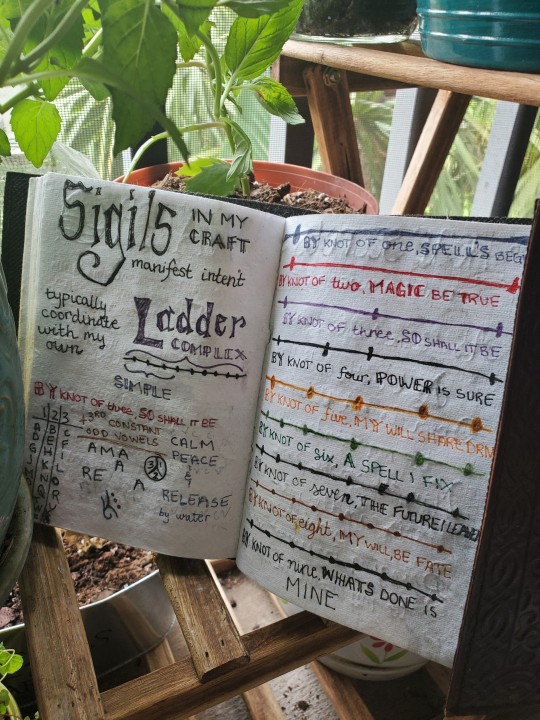 Sigils IN MY
CRAFT
manifest intent
typically
coordinate
with my
own
Ladder
COMPLEX
SIMPLE
BY KNOT OF three, SO SHALL IT BE
1 2 3
A B C
D E F
G H I
J K L
+3RD CONSTANT
ODD VOWELS
AMA
RE A
A
CALM
PEACE
&
RELEASE
by water
BY KNOT OF one, SPELL'S BEG
BY KNOT OF two, MAGIC BE TRUE
BY KNOT OF three, SO SHALL IT BE
BY KNOT OF four, POWER IS SURE
BY KNOT OF five, MY WILL SHARE DRN
BY KNOT OF six, A SPELL I FIX
BY KNOT OF seven, THE FUTURE I LEAVEN
BY KNOT OF eight, MY WILL BE FATE
BY KNOT OF nine, WHAT'S DONE IS
MINE